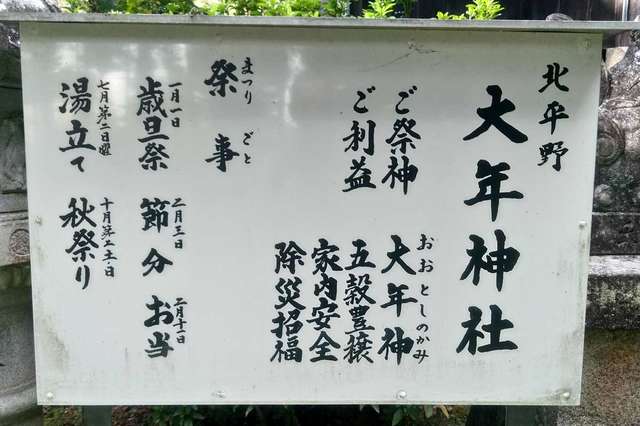 北平野
大年神社
ご祭神 大年神
おおとしのかみ
ご利益 五穀豊穣
家内安全
除災招福
祭事
まつりごと
一月一日
歳旦祭
二月三日
節分
二月十一日
お当
七月第二日曜
湯立て
十月第二土・日
秋祭り